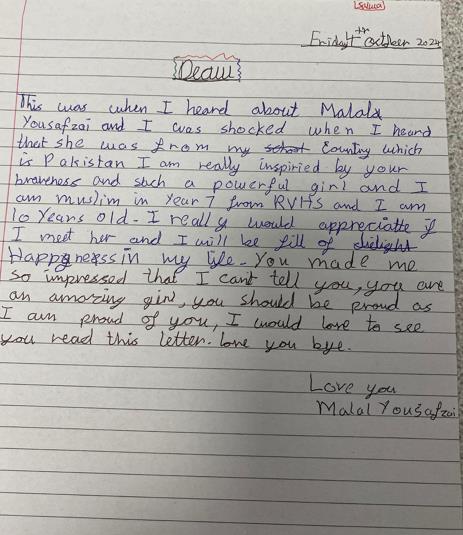 Friday 4th october 2024
This was when I heard about Malala
Yousafzai and I was shocked when I heard
that she was from my country which
is Pakistan I am really inspiried by your
braveness and such a powerful girl and I
am muslim in Year 7 from RVHS and I am
10 Years old. I really would appreciatte if
I meet her and I will be fill of
Happyness in my life. You made me
so impressed that I can't tell you, you are
an amazing girl, you should be proud as
I am proud of you, I would love to see
you read this letter. love you bye.
Love you
Malal Yousafzai